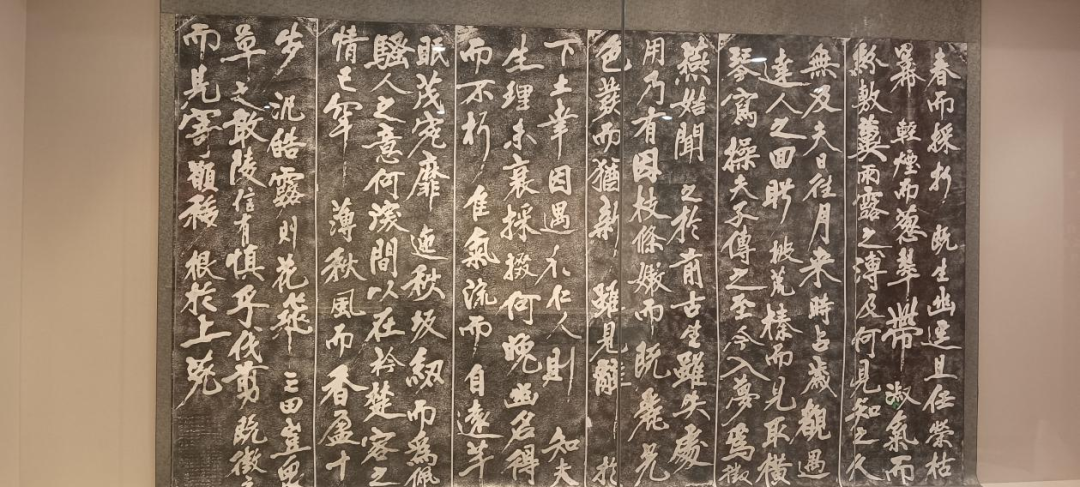 春而採折既生幽逕且任榮枯
冪輕煙而葱翠帶淑氣而
紛敷冀雨露之溥及何見知之久
無及夫日往月来時占歲観遇
達人之回眄披荒榛而見取橫
琴寫操夫子傳之至今入夢為徵
燕姞聞之於前古生雖失處
用乃有因枝條嫩而既麗光
色發而猶新雖見辭於
下土幸因遇於仁人則知夫
生理未衰採掇何晚幽名得
而不朽佳氣流而自遠羊
眠茂宛靡迤秋坂紉而為佩
騷人之意何深間以在衿楚客之
情已罕薄秋風而香盈十
步汎皓露則花飛三田豈眾
草之敢陵信有慎乎伐剪既徵
而見寄願移根於上苑